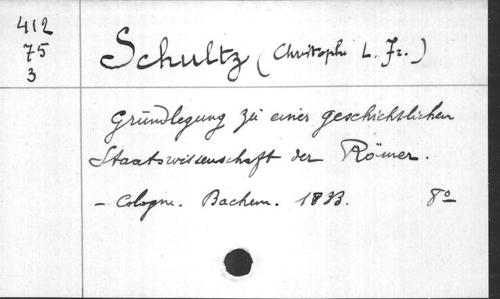 412
75
3
Schultz (Christoph L. Fr.)
Grundlegung zu einer geschichtlichen
Staatswissenschaft der Römer.
- Cologne. Bachem. 1833. 8º